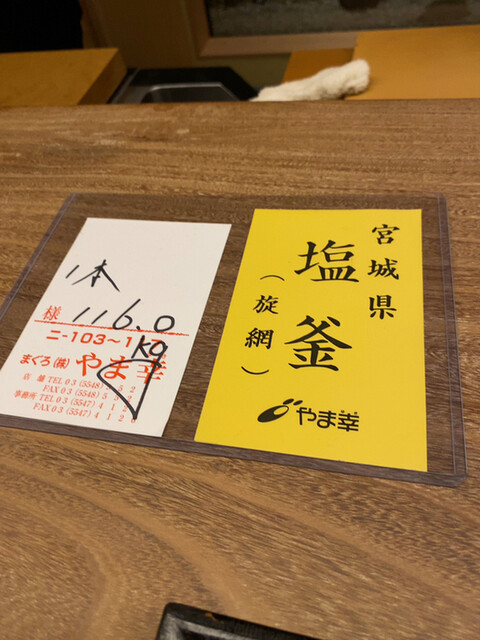 1本
116.0
kg
様
ニ-103~1
まぐろ(株)やま幸
店 舗 TEL 03(5548)
FAX 03(5548)
事務所 TEL 03(5547)412
FAX 03(5547)412
宮城県
塩釜
(旋網)
やま幸